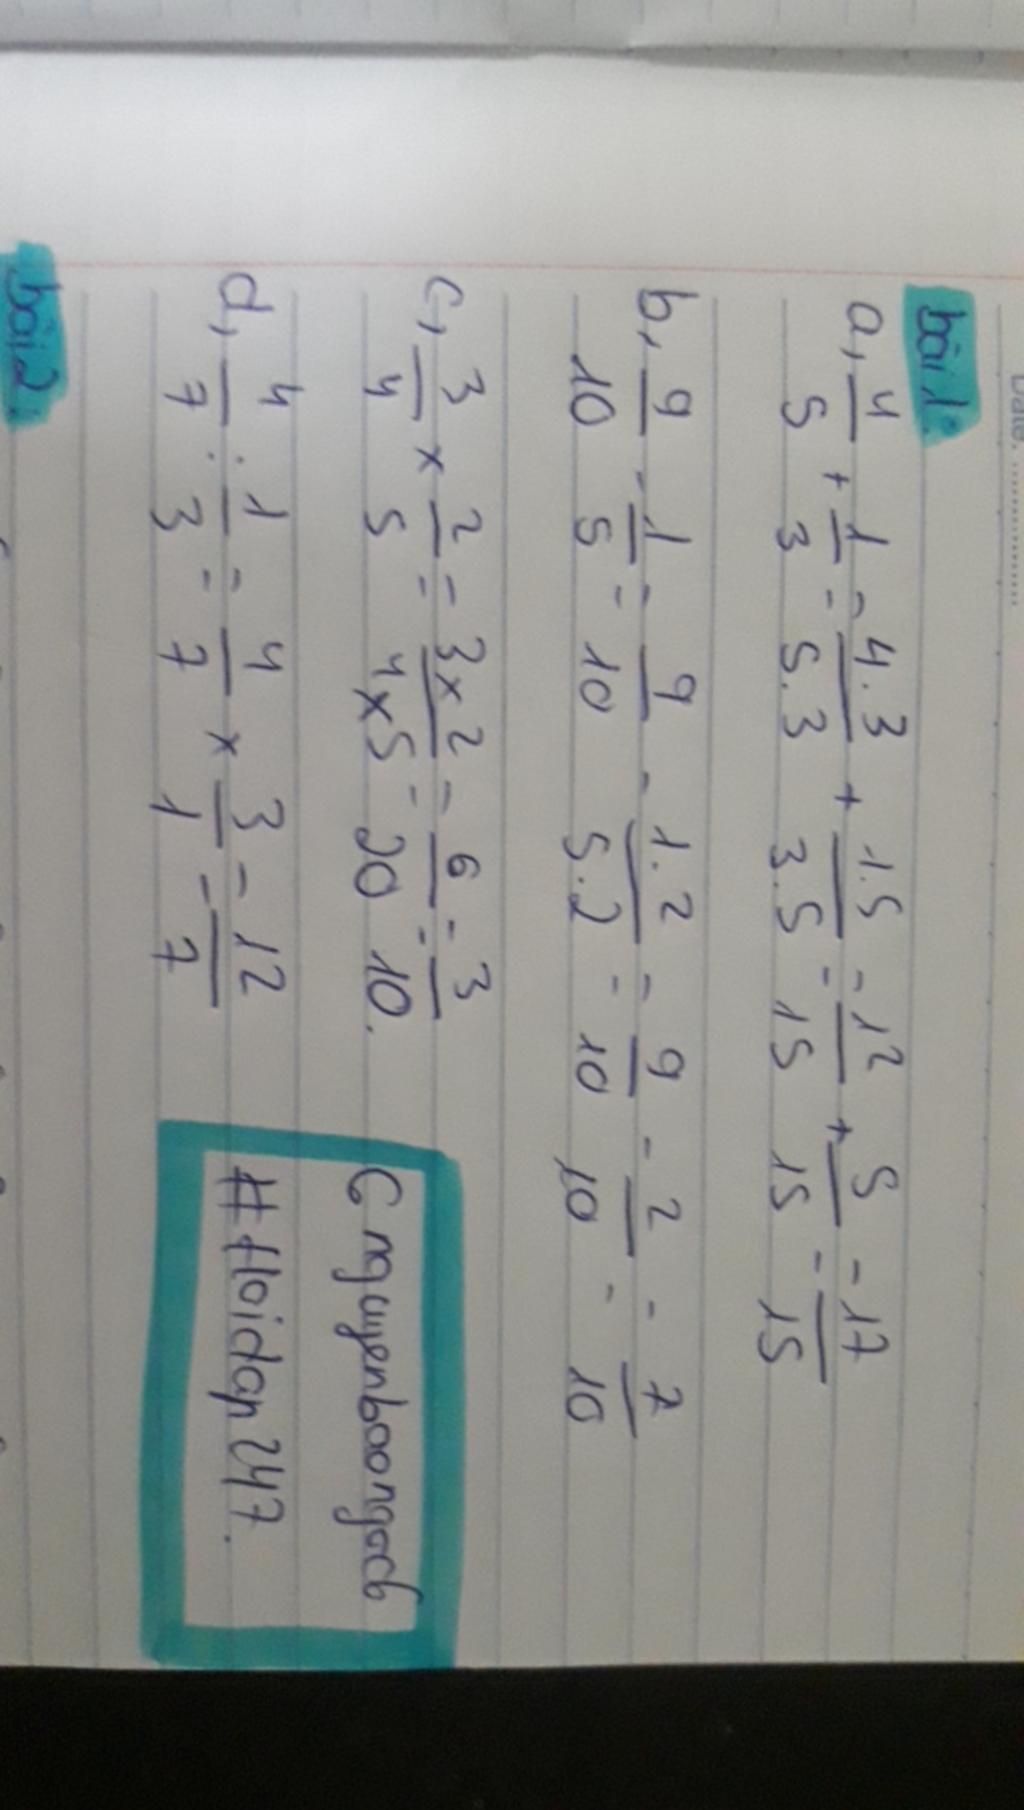 Date. ............
bài 1:
a, 4/5 + 1/3 = 4.3/5.3 + 1.5/3.5 = 12/15 + 5/15 = 17/15
b, 9/10 - 1/5 = 9/10 - 1.2/5.2 = 9/10 - 2/10 = 7/10
c, 3/4 × 2/5 = 3×2/4×5 = 6/20 = 3/10.
d, 4/7 : 1/3 = 4/7 × 3/1 = 12/7
#Hoidap247.
bài 2: